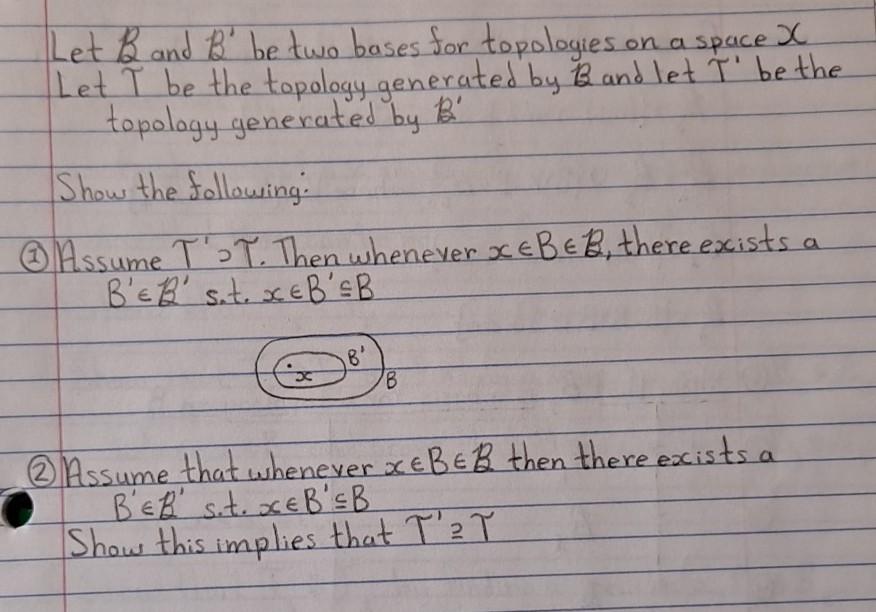 Let ℬ and ℬ' be two bases for topologies on a space X
Let T be the topology generated by ℬ and let T' be the
topology generated by ℬ'
Show the following:
① Assume T' ⊃ T. Then whenever x ∈ B ∈ ℬ, there exists a
B' ∈ ℬ' s.t. x ∈ B' ⊆ B
x B' B
② Assume that whenever x ∈ B ∈ ℬ then there exists a
B' ∈ ℬ' s.t. x ∈ B' ⊆ B
Show this implies that T' ⊇ T